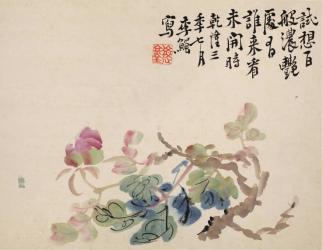 試想百
般濃艷
處有
誰来看
未開時
乾隆三
年七月
李鱓
寫